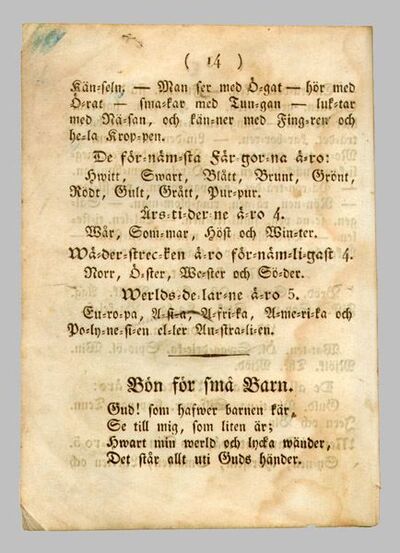 ( 14 )
Kän-seln. — Man ser med Ö-gat — hör med
Ö-rat — sma-kar med Tun-gan — luk-tar
med Nä-san, och kän-ner med Fing-ren och
he-la Krop-pen.
De för-näm-sta Fär-gor-na ä-ro:
Hwitt, Swart, Blått, Brunt, Grönt,
Rödt, Gult, Grått, Pur-pur.
Års-ti-der-ne ä-ro 4.
Wår, Som-mar, Höst och Win-ter.
Wä-der-strec-ken ä-ro för-näm-ligast 4.
Norr, Ö-ster, We-ster och Sö-der.
Werlds-de-lar-ne ä-ro 5.
Eu-ro-pa, A-si-a, A-fri-ka, A-me-ri-ka och
Po-ly-ne-si-en el-ler Au-stra-li-en.
Bön för små Barn.
Gud! som hafwer barnen kär,
Se till mig, som liten är;
Hwart min werld och lycka wänder,
Det står allt uti Guds händer.